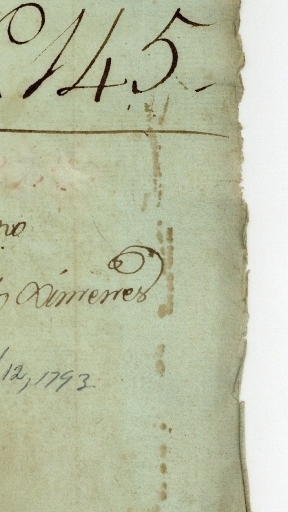 145
Ximenes
12, 1793